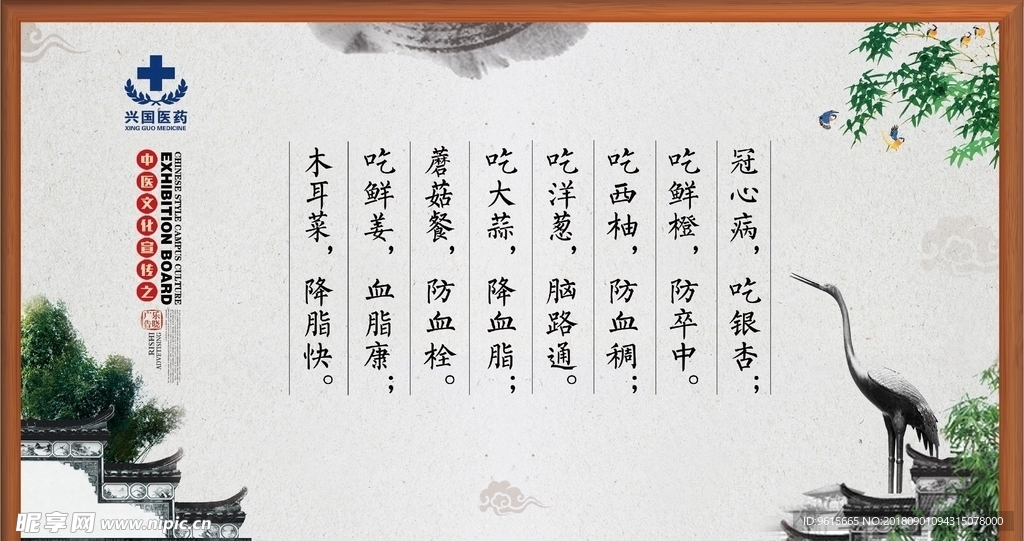 冠心病，吃银杏；
吃鲜橙，防卒中。
吃西柚，防血稠；
吃洋葱，脑路通。
吃大蒜，降血脂；
蘑菇餐，防血栓。
吃鲜姜，血脂康；
木耳菜，降脂快。
兴国医药
XING GUO MEDICINE
CHINESE STYLE CAMPUS CULTURE
EXHIBITION BOARD
中医文化宣传之
乐晓
广告
ADVERTISING
RISHI
昵享网 www.nipic.cn
ID:9615665 NO:20180901094315078000